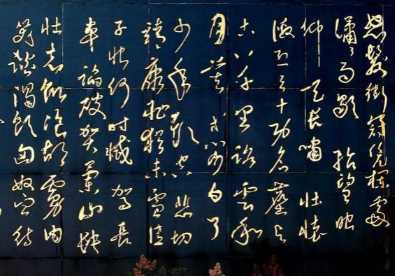 怒髮衝冠憑欄處
瀟瀟雨歇抬望眼
仰天長嘯壯懷
激烈三十功名塵與
土八千里路雲和
月莫等閒白了
少年頭空悲切
靖康恥猶未雪臣
子恨何時滅駕長
車踏破賀蘭山缺
壯志飢餐胡虜肉
笑談渴飲匈奴血待